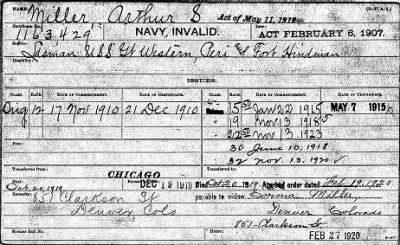 Miller, Arthur S Act of May 11, 1912
1163429 NAVY, INVALID. ACT FEBRUARY 6, 1907.
Seaman USS Gt Western, Peri and Fort Hindman
Disability:
ISSUES
Class. RATE DATE OF COMMENCEMENT. DATE OF CERTIFICATE. RATE DATE OF COMMENCEMENT. DATE OF CERTIFICATE.
Aug 12 17 Nov 1910 21 Dec 1910 Jan 22 1915 MAY 7 1915
19 Nov 13 1918
Nov. 13 1923
30 June 10, 1918
32 Nov. 13, 1920
Transferred from Transferred to
CHICAGO
Oct 20 1919 DEC 19 1919 Died Oct 20 1919 Accrued order dated Feb 19, 1920
857 Clarkson St payable to widow, Miller,
Denver, Colo Denver Colorado
857 Clarkson St
Former Roll No. FEB 27 1920